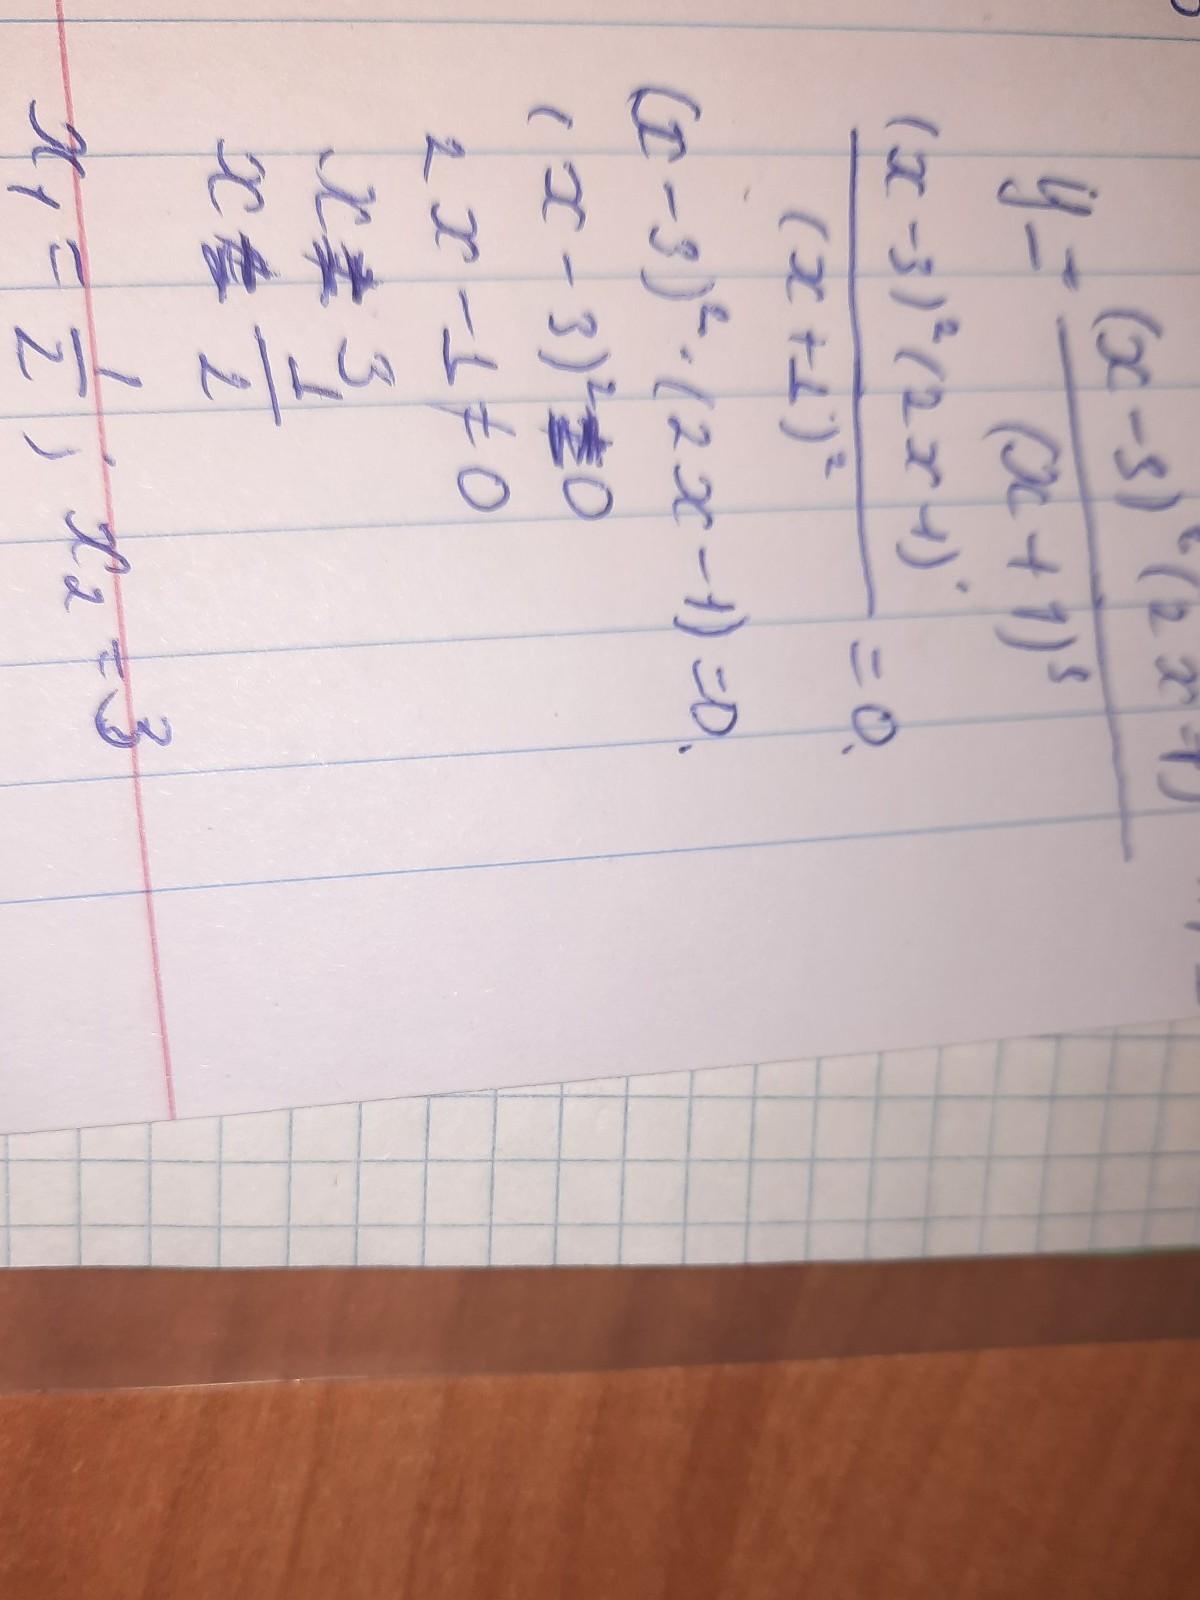 y = (x-3)²(2x-1) / (x+1)³
(x-3)²(2x-1) / (x+1)² = 0.
(x-3)²·(2x-1)=0.
(x-3)²=0
2x-1≠0
x=3
x=1/2
x₁=1/2; x₂=3